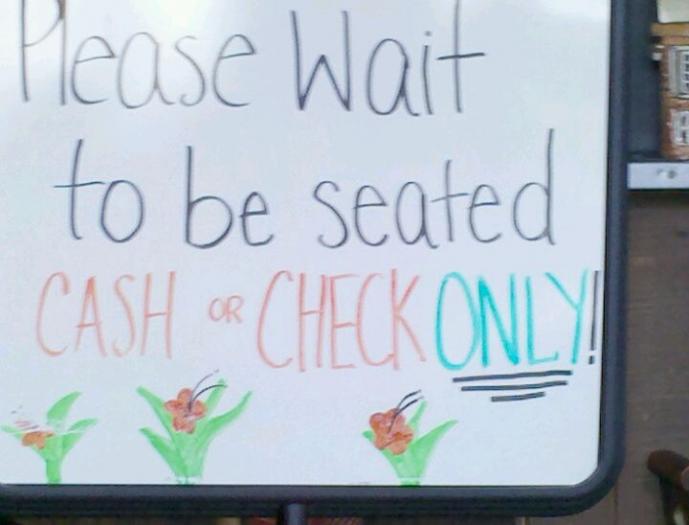 Please Wait
to be seated
CASH OR CHECK ONLY!